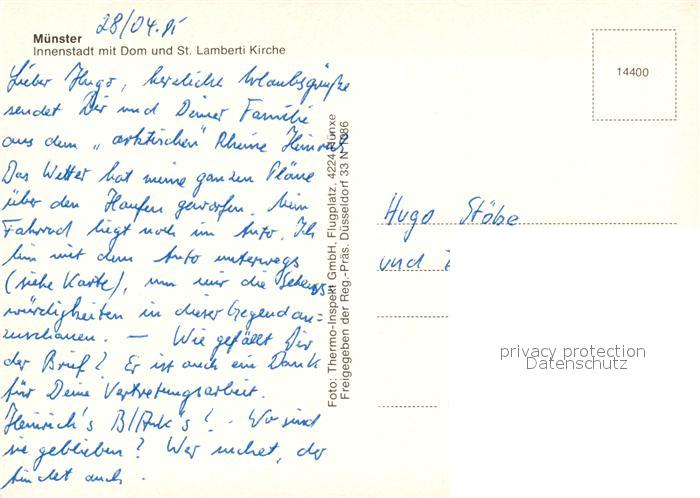 28/04.
Münster
Innenstadt mit Dom und St. Lamberti Kirche
14400
Lieber Hugo, herzliche Urlaubsgrüße
sendet Dir und Deiner Familie
aus dem „arktischen" Rheine Heinrich
Das Wetter hat meine ganzen Pläne
über den Haufen geworfen. Mein
Fahrrad liegt noch im Auto. Ich
bin mit dem Auto unterwegs
(siehe Karte), um mir die Sehens-
würdigkeiten in dieser Gegend an=
zuschauen. — Wie gefällt Dir
der Brief? Er ist auch ein Dank
für Deine Vertretungsarbeit.
Heinrich's ! - Wo sind
sie geblieben? Wer suchet, der
findet auch.
Foto: Thermo-Inspekt GmbH, Flugplatz, 4224 Hünxe
Freigegeben der Reg.-Präs. Düsseldorf 33 N 1086
Hugo Stöbe
und
privacy protection
Datenschutz